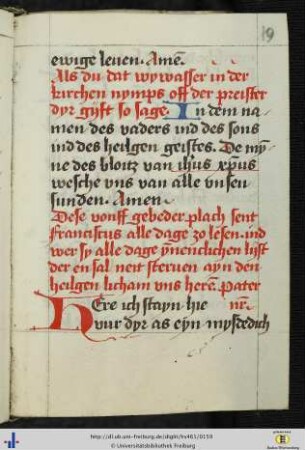 19
ewige leuen. Amē.
Als du dat wywasser in der
kirchen nymps off der preister
dyr gyft so sage. In dem na
men des vaders ind des sons
ind des heilgen geistes. De mȳ
ne des bloitz van ihūs xp̄us
wesche vns van alle vnsen
sunden. Amen
Dese vonff gebeder plach sent
Franciscus alle dage zo lesen. ind
wer sy alle dage ynenclichen lijst
der en sal neit steruen ayn den
heilgen licham vns herē. Pater
Here ich stayn hie nr̄.
vur dyr as eyn mysdedich
http://dl.ub.uni-freiburg.de/diglit/hs483/0159
© Universitätsbibliothek Freiburg
Baden-Württemberg